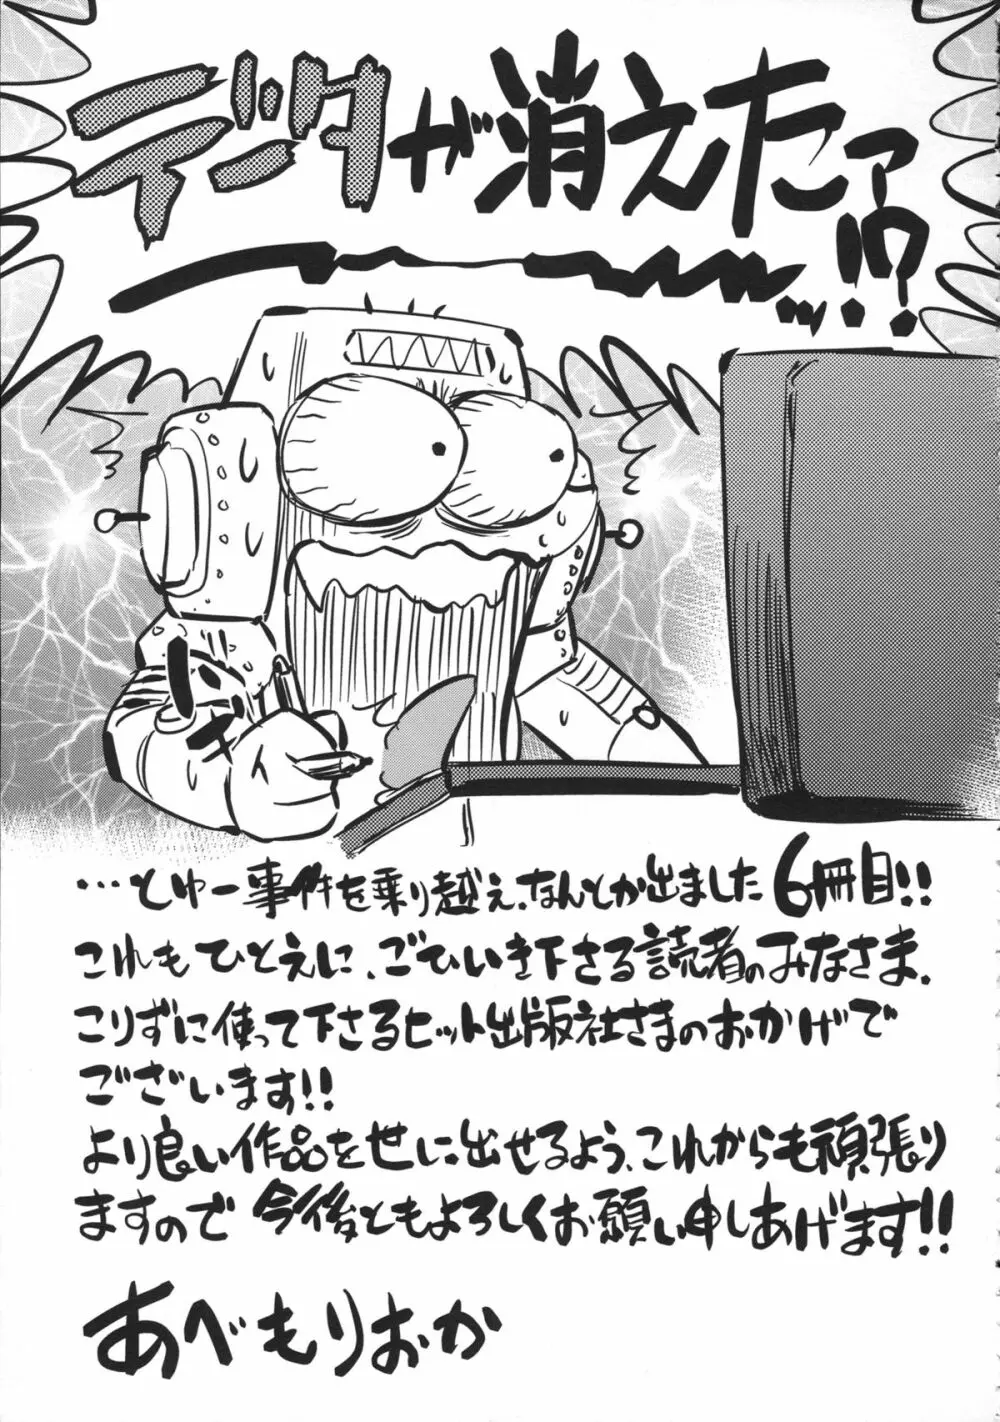 データが消えたァーーーッ!!?
…とゆー事件を乗り越え、なんとか出ました6冊目!!
これもひとえに、ごひいき下さる読者のみなさま、
こりずに使って下さるヒット出版社さまのおかげで
ございます!!
より良い作品を世に出せるよう、これからも頑張り
ますので今後ともよろしくお願い申しあげます!!
あべもりおか